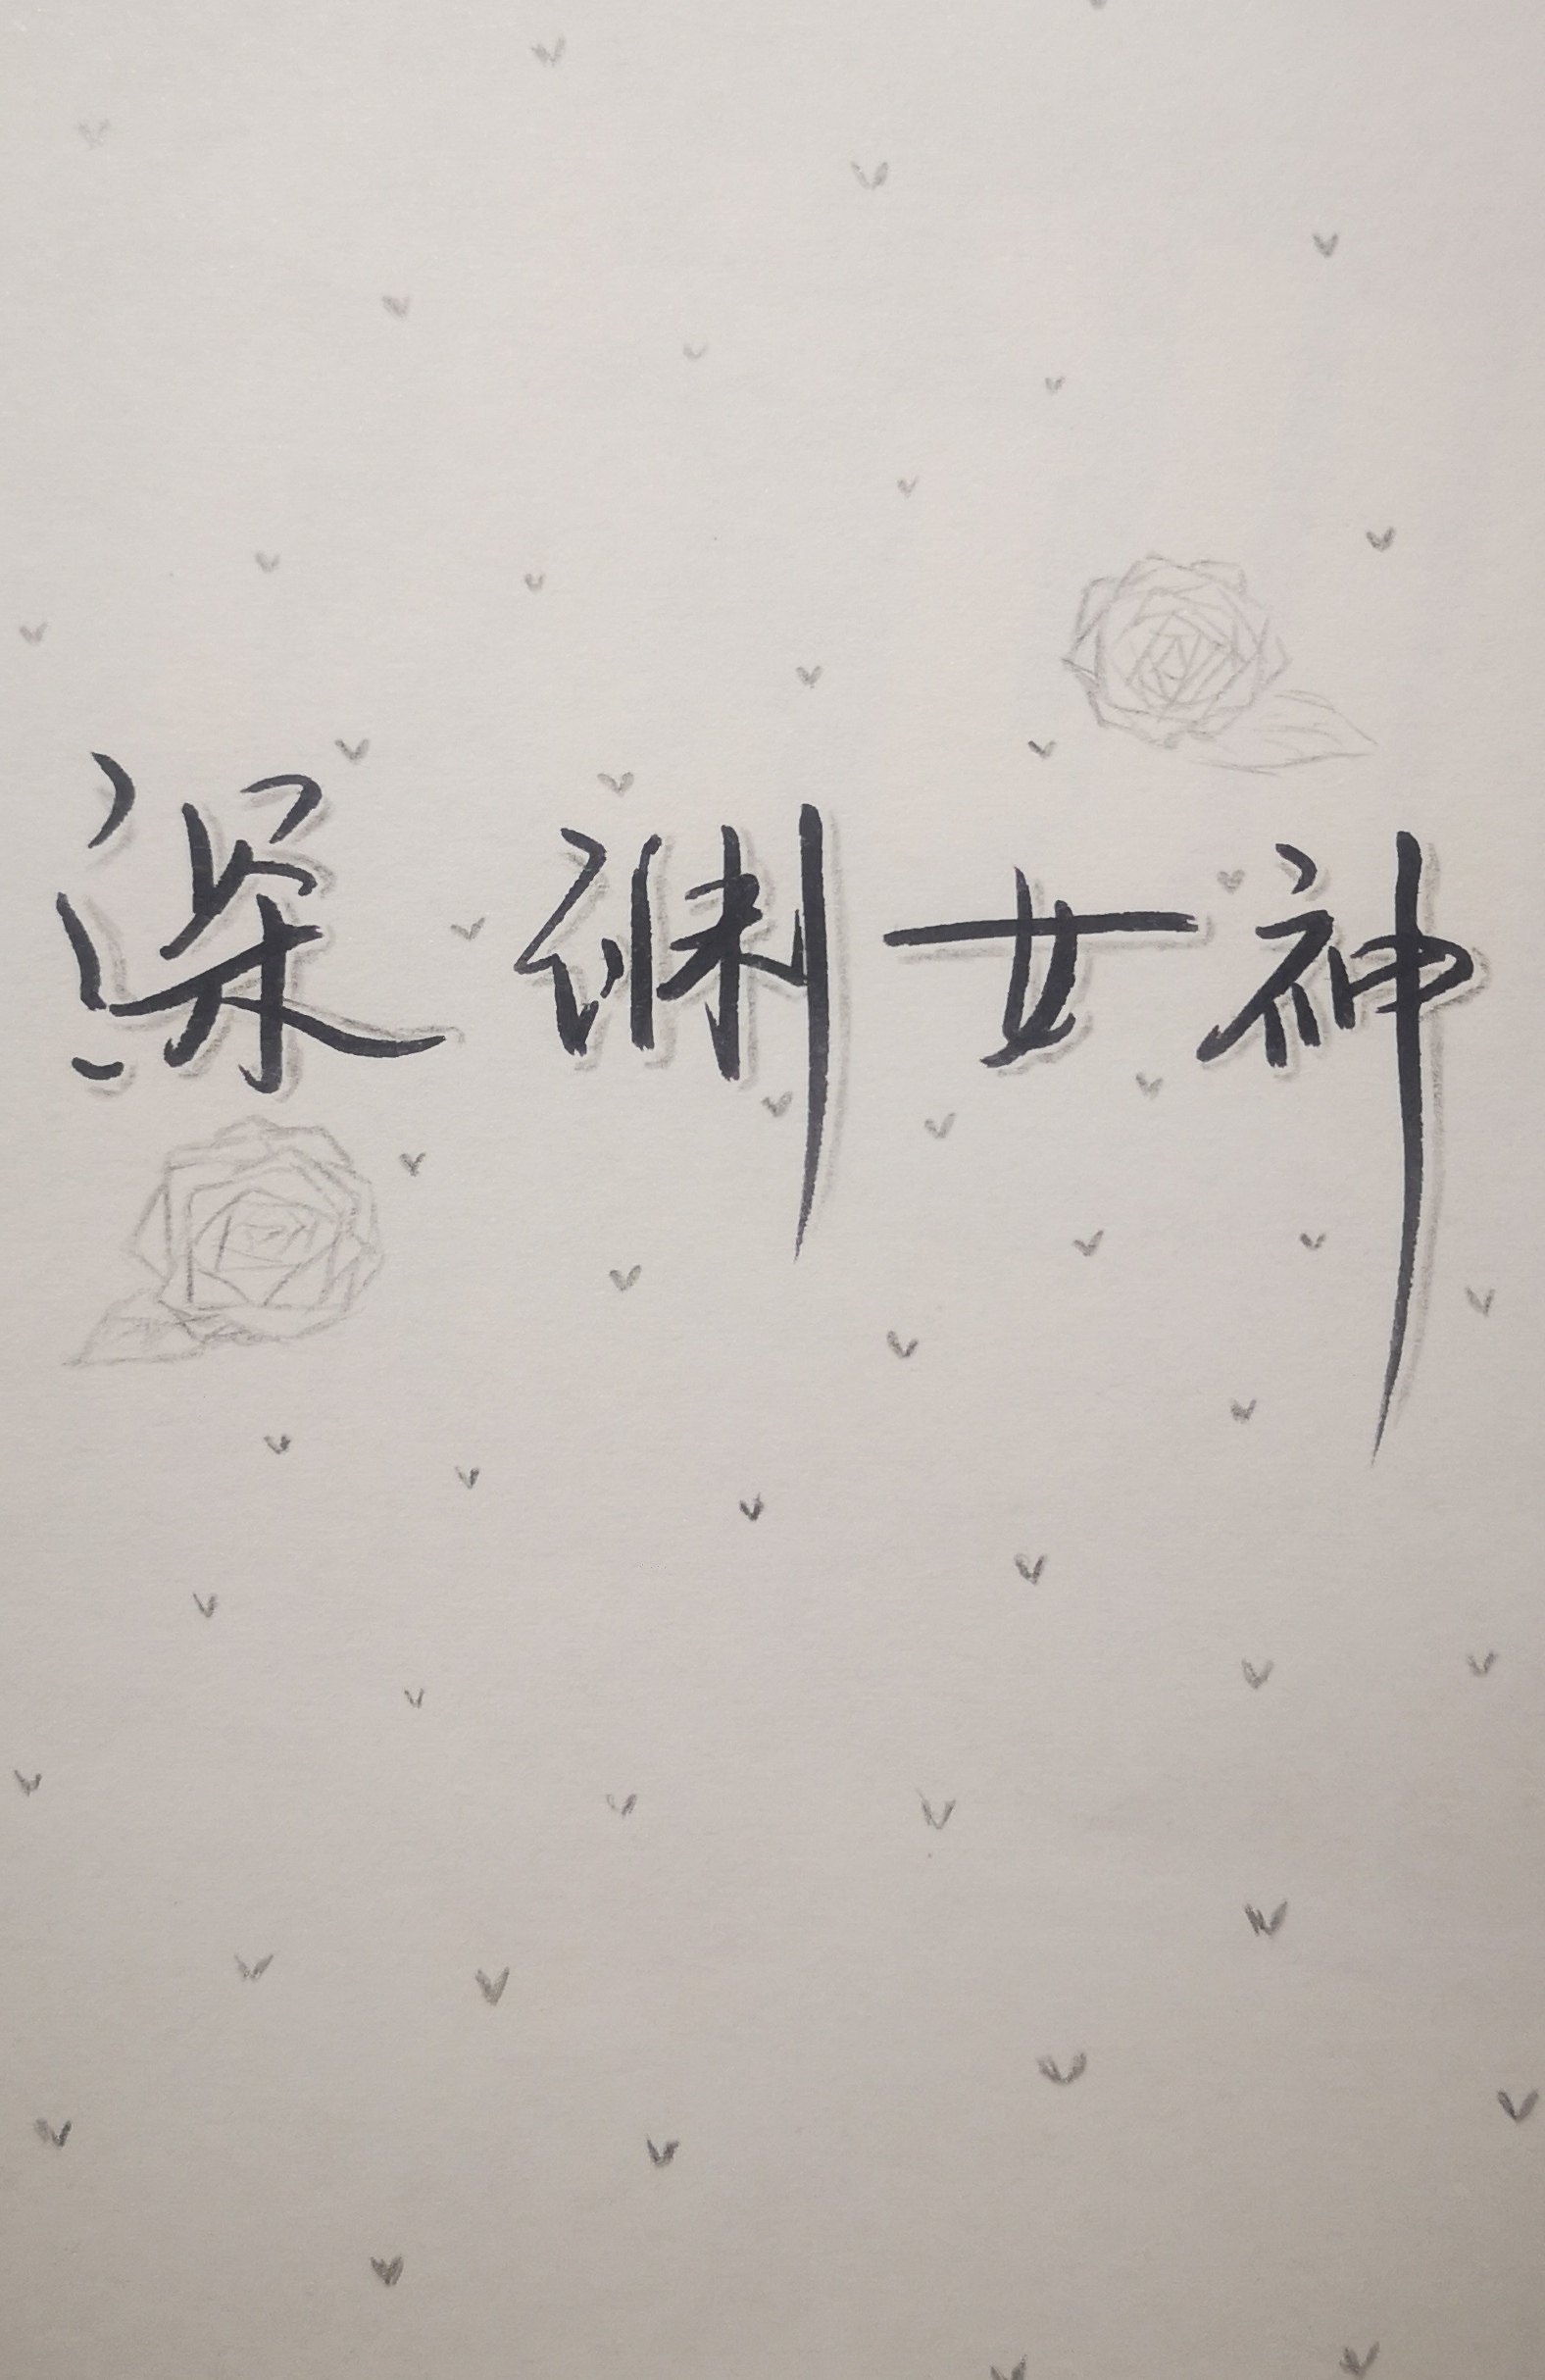 深渊女神